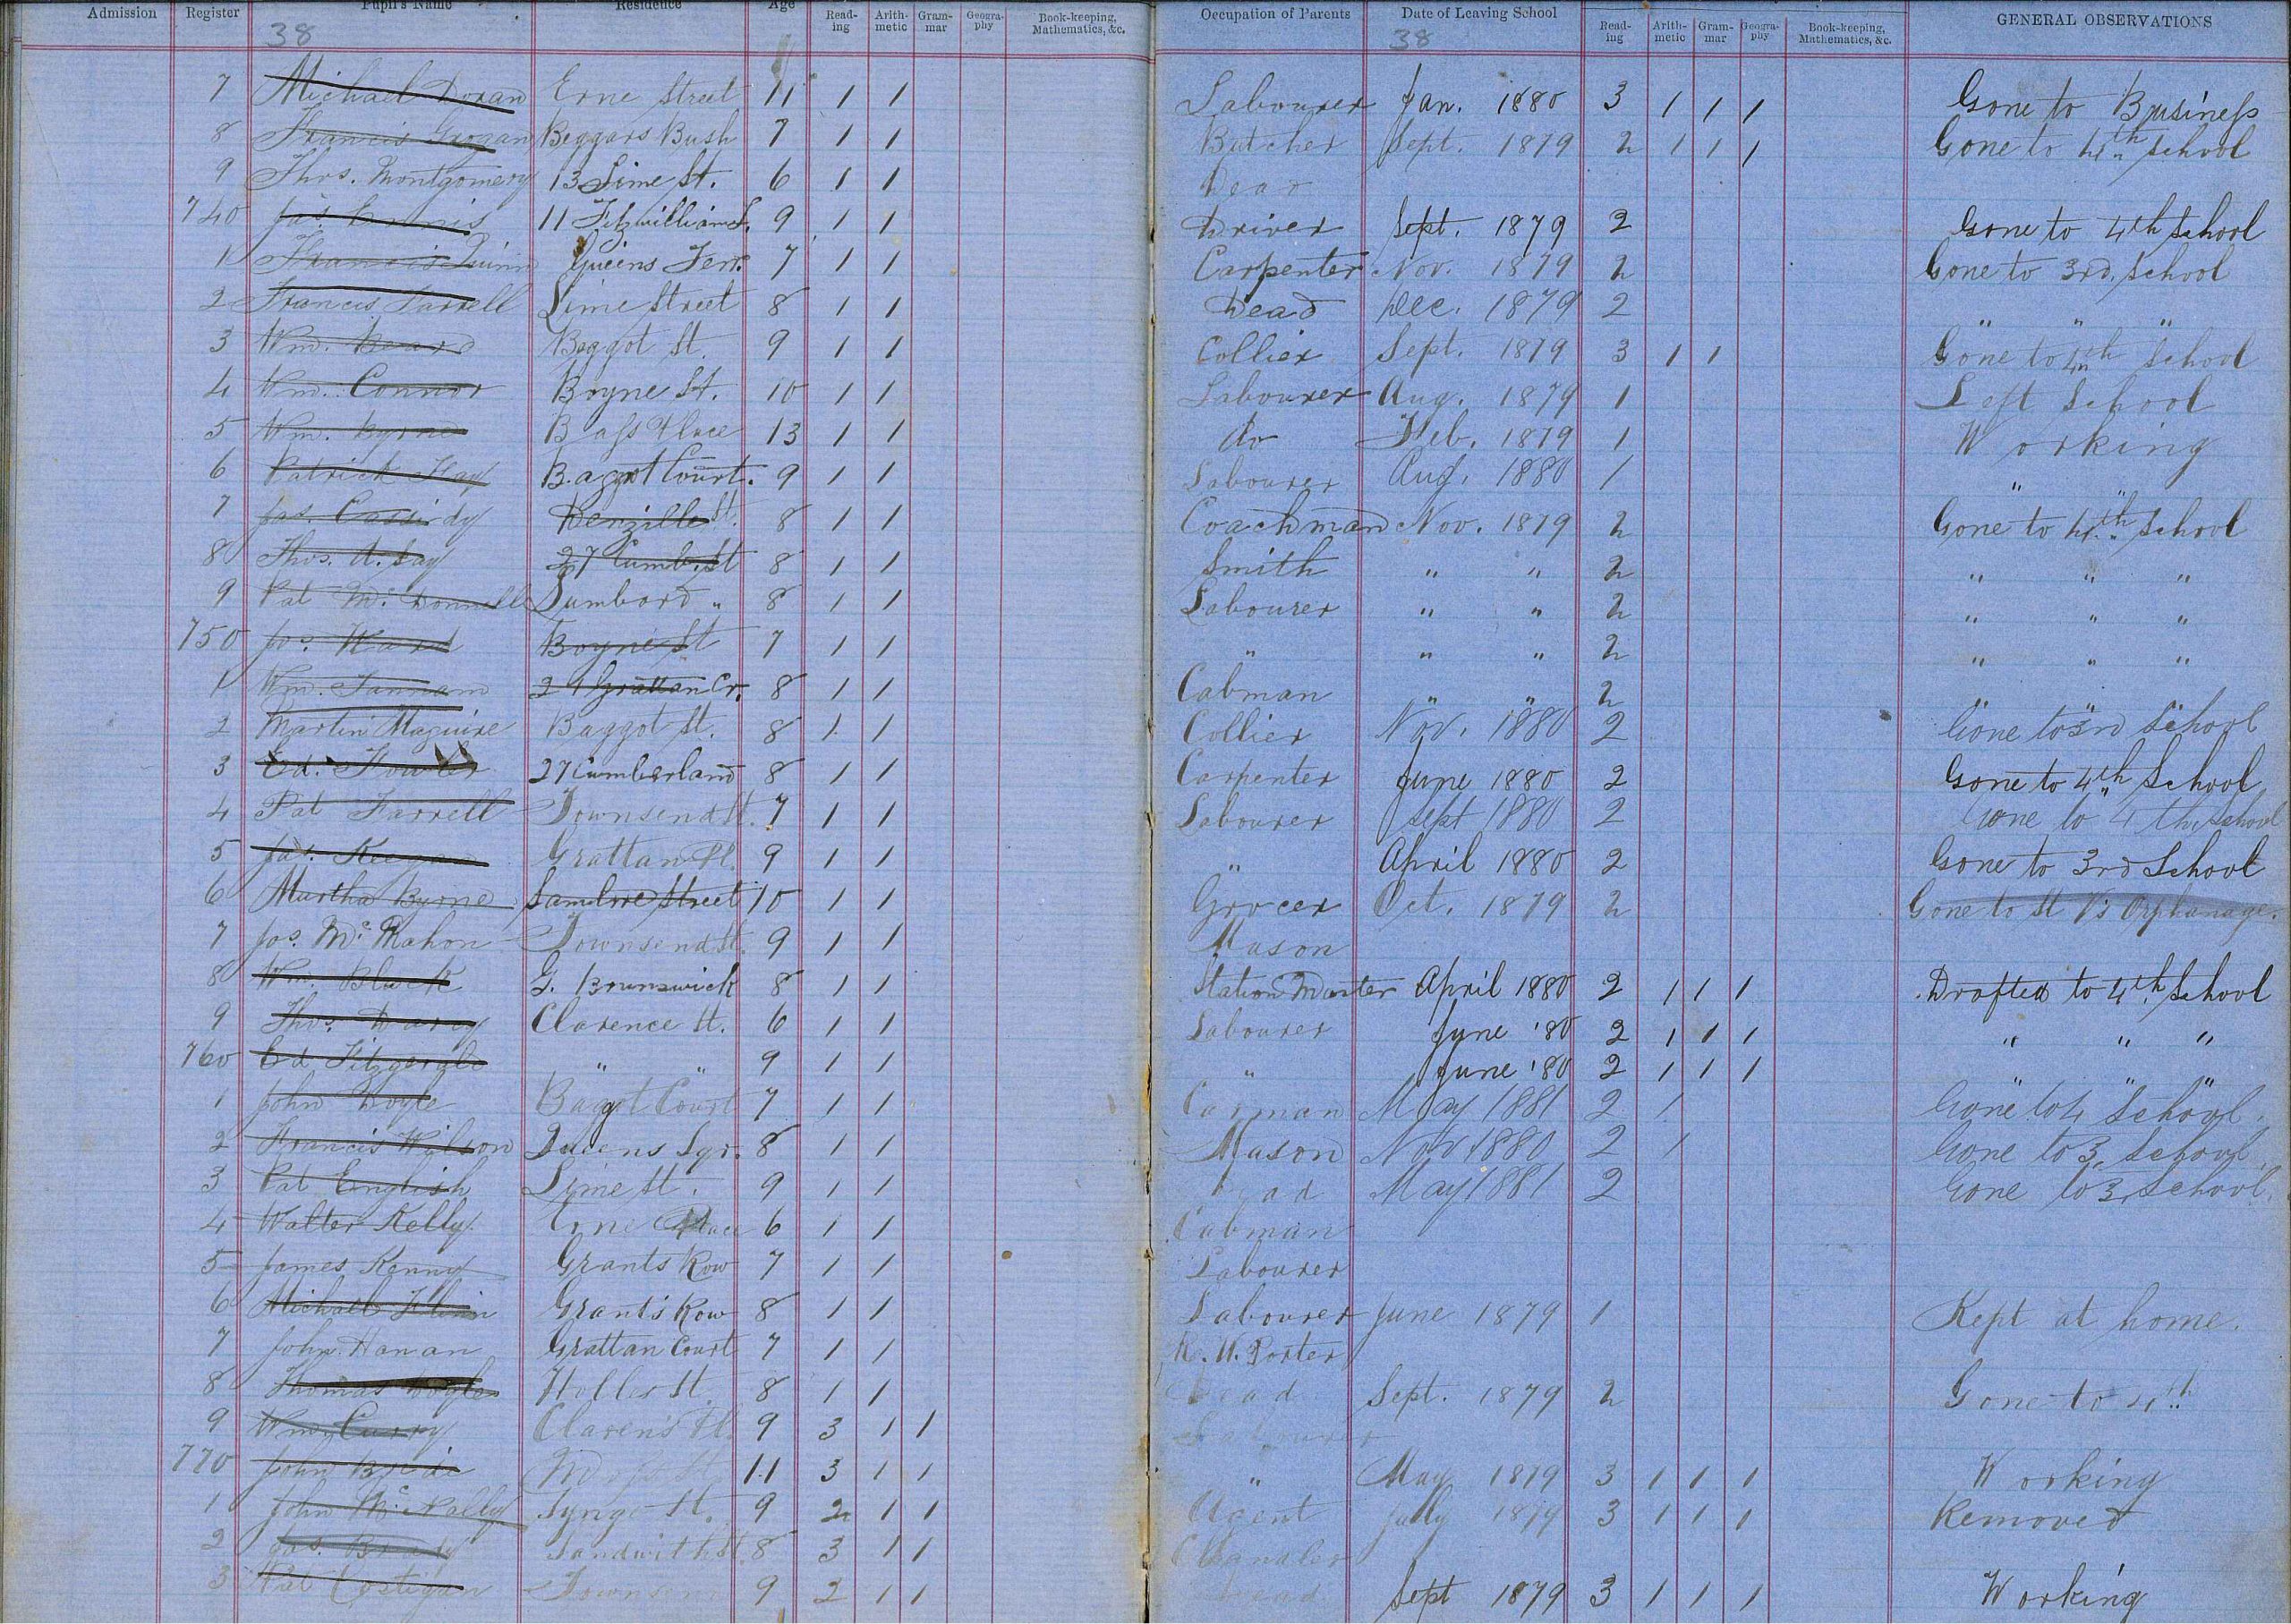 Admission Register Pupil's Name Residence Age Read-ing Arith-metic Gram-mar Geogra-phy Book-keeping, Mathematics, &c. Occupation of Parents Date of Leaving School Read-ing Arith-metic Gram-mar Geogra-phy Book-keeping, Mathematics, &c. GENERAL OBSERVATIONS
38 38
7 Michael Doran Erne Street 11 1 1 Labourer Jan. 1880 3 1 1 1 Gone to Business
8 Francis Grogan Beggars Bush 7 1 1 Butcher Sept. 1879 2 1 1 1 Gone to 4th School
9 Thos. Montgomery 13 Lime St. 6 1 1 Dead
740 Jas. Ennis 11 Fitzwilliam S. 9 1 1 Driver Sept. 1879 2 Gone to 4th School
1 Francis Quinn Queens Terr. 7 1 1 Carpenter Nov. 1879 2 Gone to 3rd School
2 Francis Farrell Lime Street 8 1 1 Dead Dec. 1879 2 " " "
3 Wm. Beard Baggot St. 9 1 1 Collier Sept. 1879 3 1 1 Gone to 4th School
4 Wm. Connor Boyne St. 10 1 1 Labourer Aug. 1879 1 Left School
5 Wm. Byrne Bass Place 13 1 1 do Feb. 1879 1 Working
6 Patrick Hay Bagot Court. 9 1 1 Labourer Aug. 1880 1 " "
7 Jas. Cassidy Denzille St. 8 1 1 Coachman Nov. 1879 2 Gone to 4th School
8 Thos. A. Lay 27 Cumb. St 8 1 1 Smith " " 2 " " "
9 Pat McDonnell Lumbard " 8 1 1 Labourer " " 2 " " "
750 Jos. Ward Boyne St 7 1 1 " " " 2 " " "
1 Wm. Fannam 21 Grattan Cr. 8 1 1 Cabman " " 2 " " "
2 Martin Maguire Baggot St. 8 1 1 Collier Nov. 1880 2 Gone to 3rd School
3 Ed. Fowler 27 Cumberland 8 1 1 Carpenter June 1880 2 Gone to 4th School
4 Pat Farrell Townsend St. 7 1 1 Labourer Sept 1880 2 Gone to 4th School
5 Jas. Keegan Grattan Pl. 9 1 1 " April 1880 2 Gone to 3rd School
6 Murtha Byrne Street 10 1 1 Grocer Oct. 1879 2 Gone to St V's Orphanage.
7 Jas. McMahon Townsend St. 9 1 1 Mason
8 Wm. Black G. Brunswick 8 1 1 Station Master April 1880 2 1 1 1 Drafted to 4th School
9 Thos. Darcy Clarence St. 6 1 1 Labourer June '80 2 1 1 1 " " "
760 Ed Fitzgerald " " 9 1 1 " June '80 2 1 1 1 " " "
1 John Doyle Bagot Court 7 1 1 Carman May 1881 2 1 Gone to 4 School.
2 Francis Wilson Queens Sqr. 8 1 1 Mason Nov 1880 2 1 Gone to 3 School.
3 Pat English Lime St. 9 1 1 Dead May 1881 2 Gone to 3 School.
4 Walter Kelly Erne Place 6 1 1 Cabman
5 James Kenny Grants Row 7 1 1 Labourer
6 Michael Grant's Row 8 1 1 Labourer June 1879 1 Kept at home.
7 John Hanan Grattan Court 7 1 1 R. W. Porter
8 Thomas Doyle Holles St. 8 1 1 Dead Sept. 1879 2 Gone to 4th
9 Wm. Curry Claren's Pl. 9 3 1 1 Labourer
770 John Bride 11 3 1 1 " May 1879 3 1 1 1 Working
1 John McNally Synge St. 9 2 1 1 Agent July 1879 3 1 1 1 Removed
2 Jas. Brady Sandwith St. 8 3 1 1 Chandler
3 Pat Costigan Townsend 9 2 1 1 Dead Sept 1879 3 1 1 1 Working